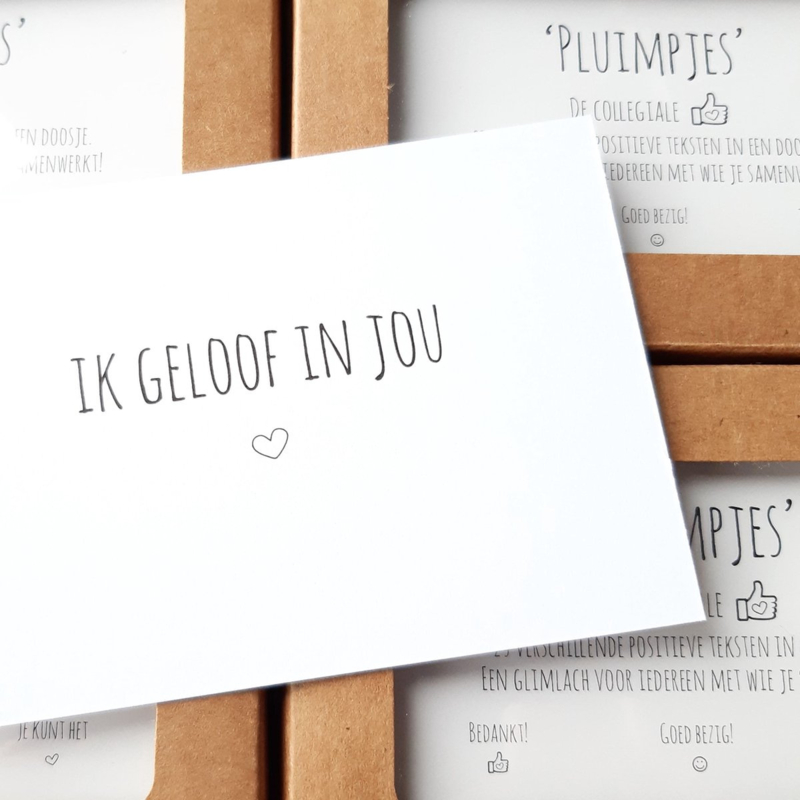 S'
EEN DOOSJE.
SAMENWERKT!
'PLUIMPJES'
DE COLLEGIALE
POSITIEVE TEKSTEN IN EEN
IEDEREEN MET WIE JE
GOED BEZIG!
IK GELOOF IN JOU
MPJES'
LE
25 VERSCHILLENDE POSITIEVE TEKSTEN IN
EEN GLIMLACH VOOR IEDEREEN MET WIE JE
BEDANKT!
GOED BEZIG!
JE KUNT HET